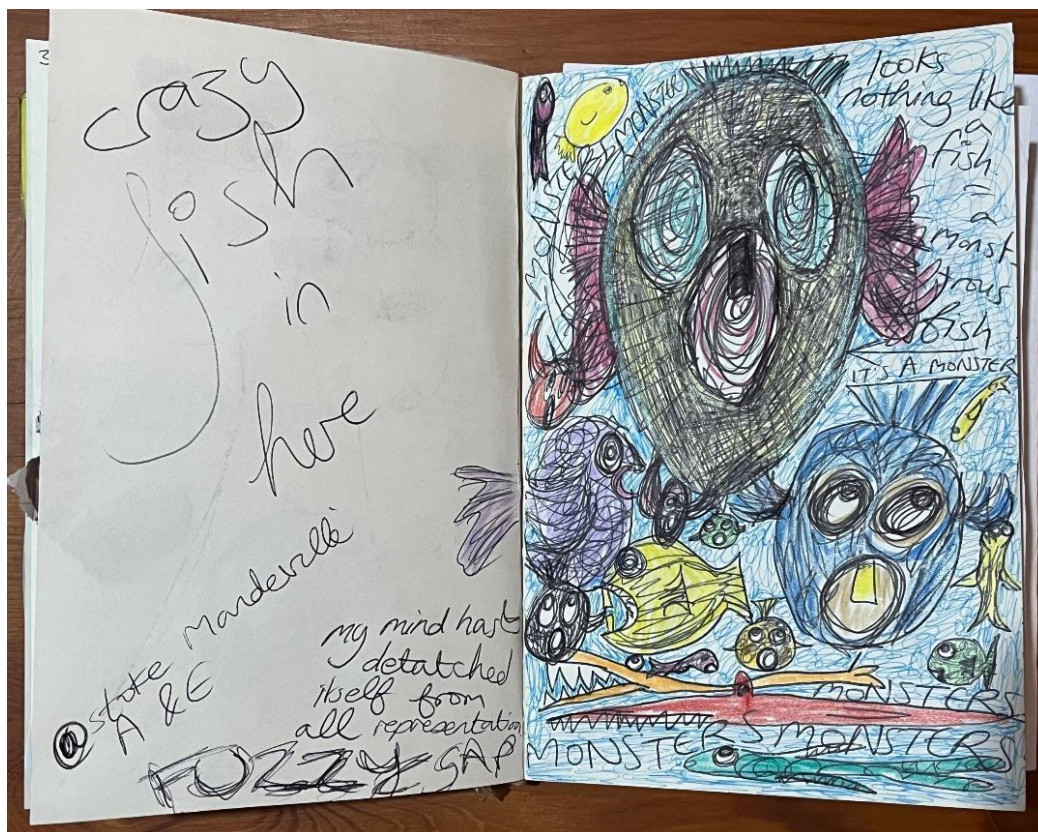 crazy
fish
in
here
@stoke Mandeville
A & E
my mind hast
detatched
itself from
all representation
FUZZY GAP
MONSTER
MONSTER
looks
nothing like
a
fish
- a
monst
trous
fish
IT'S A MONSTER
MONSTERS
MONSTERS MONSTERS